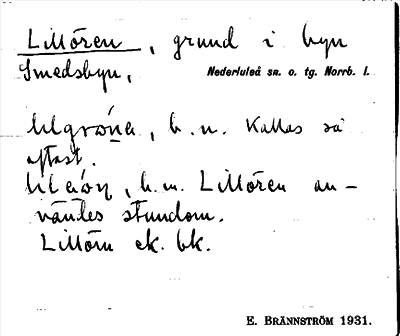 Lillören, grund i byn
Smedsbyn,
Nederluleå sn. o. tg. Norrb. l.
b. n. Kallas så
oftast.
b. m. Lillören an-
väntes stundom.
Lillörn ek. bk.
E. BRÄNNSTRÖM 1931.